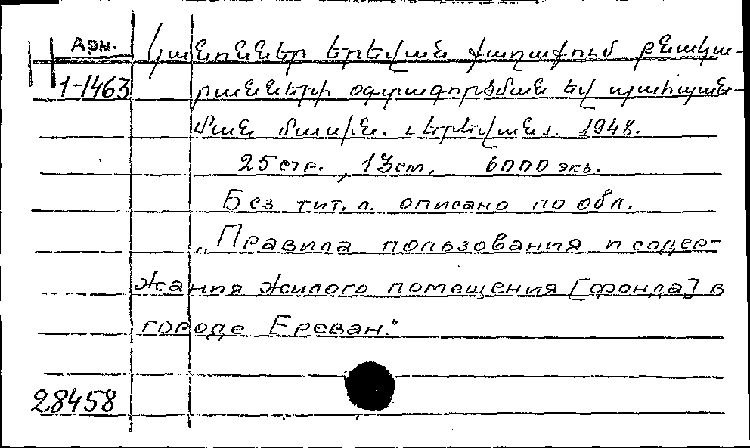 Арм.
1-1463
Կանոններ Երեվան քաղաքում բնակա-
րանների օգտագործման եվ պահպան-
ման մասին. Երեվան. 1948.
25 стр., 13 см. 6000 экз.
Без тит. л. описано по обл.
„Правила пользования и содер-
жания жилого помещения [фонда] в
городе Ереван."
28458